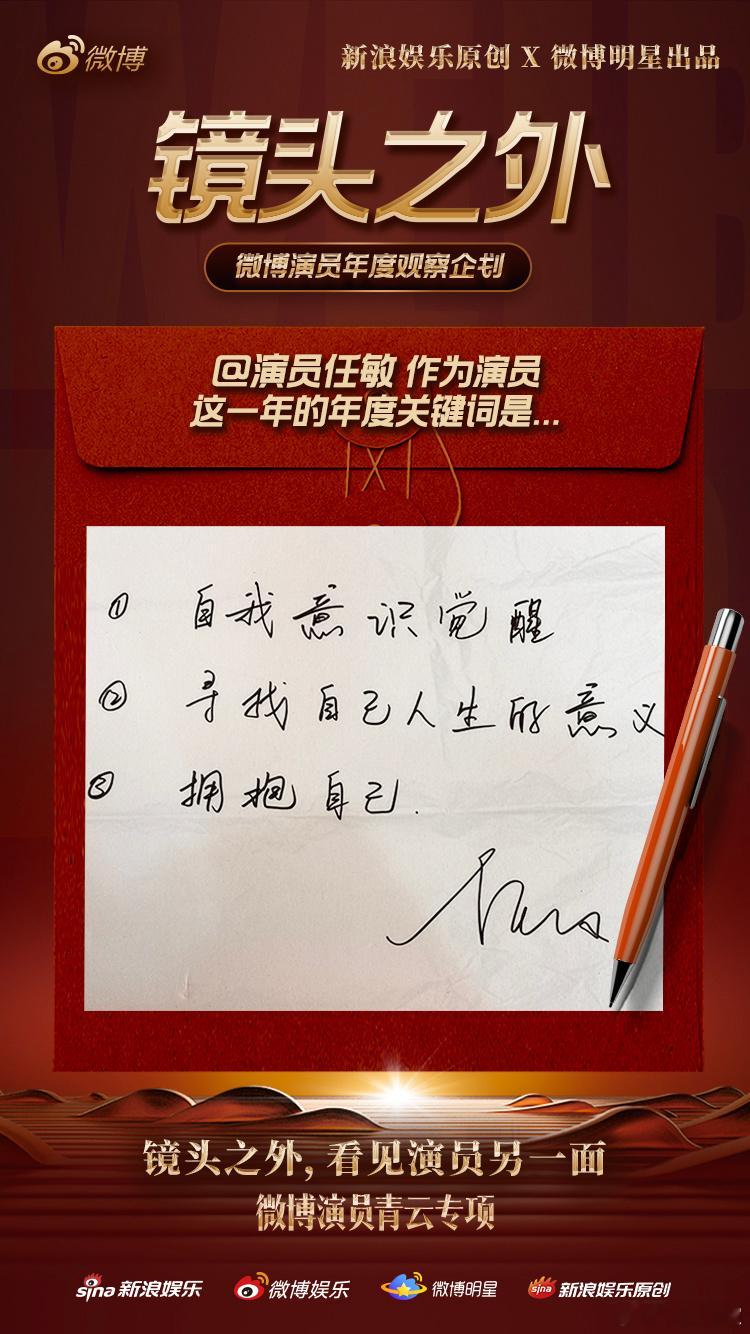 微博
新浪娱乐原创 X 微博明星出品
镜头之外
微博演员年度观察企划
@演员任敏 作为演员
这一年的年度关键词是...
① 自我意识觉醒
② 寻找自己人生的意义
③ 拥抱自己.
镜头之外, 看见演员另一面
微博演员青云专项
sina 新浪娱乐 微博娱乐 微博明星 sina 新浪娱乐原创